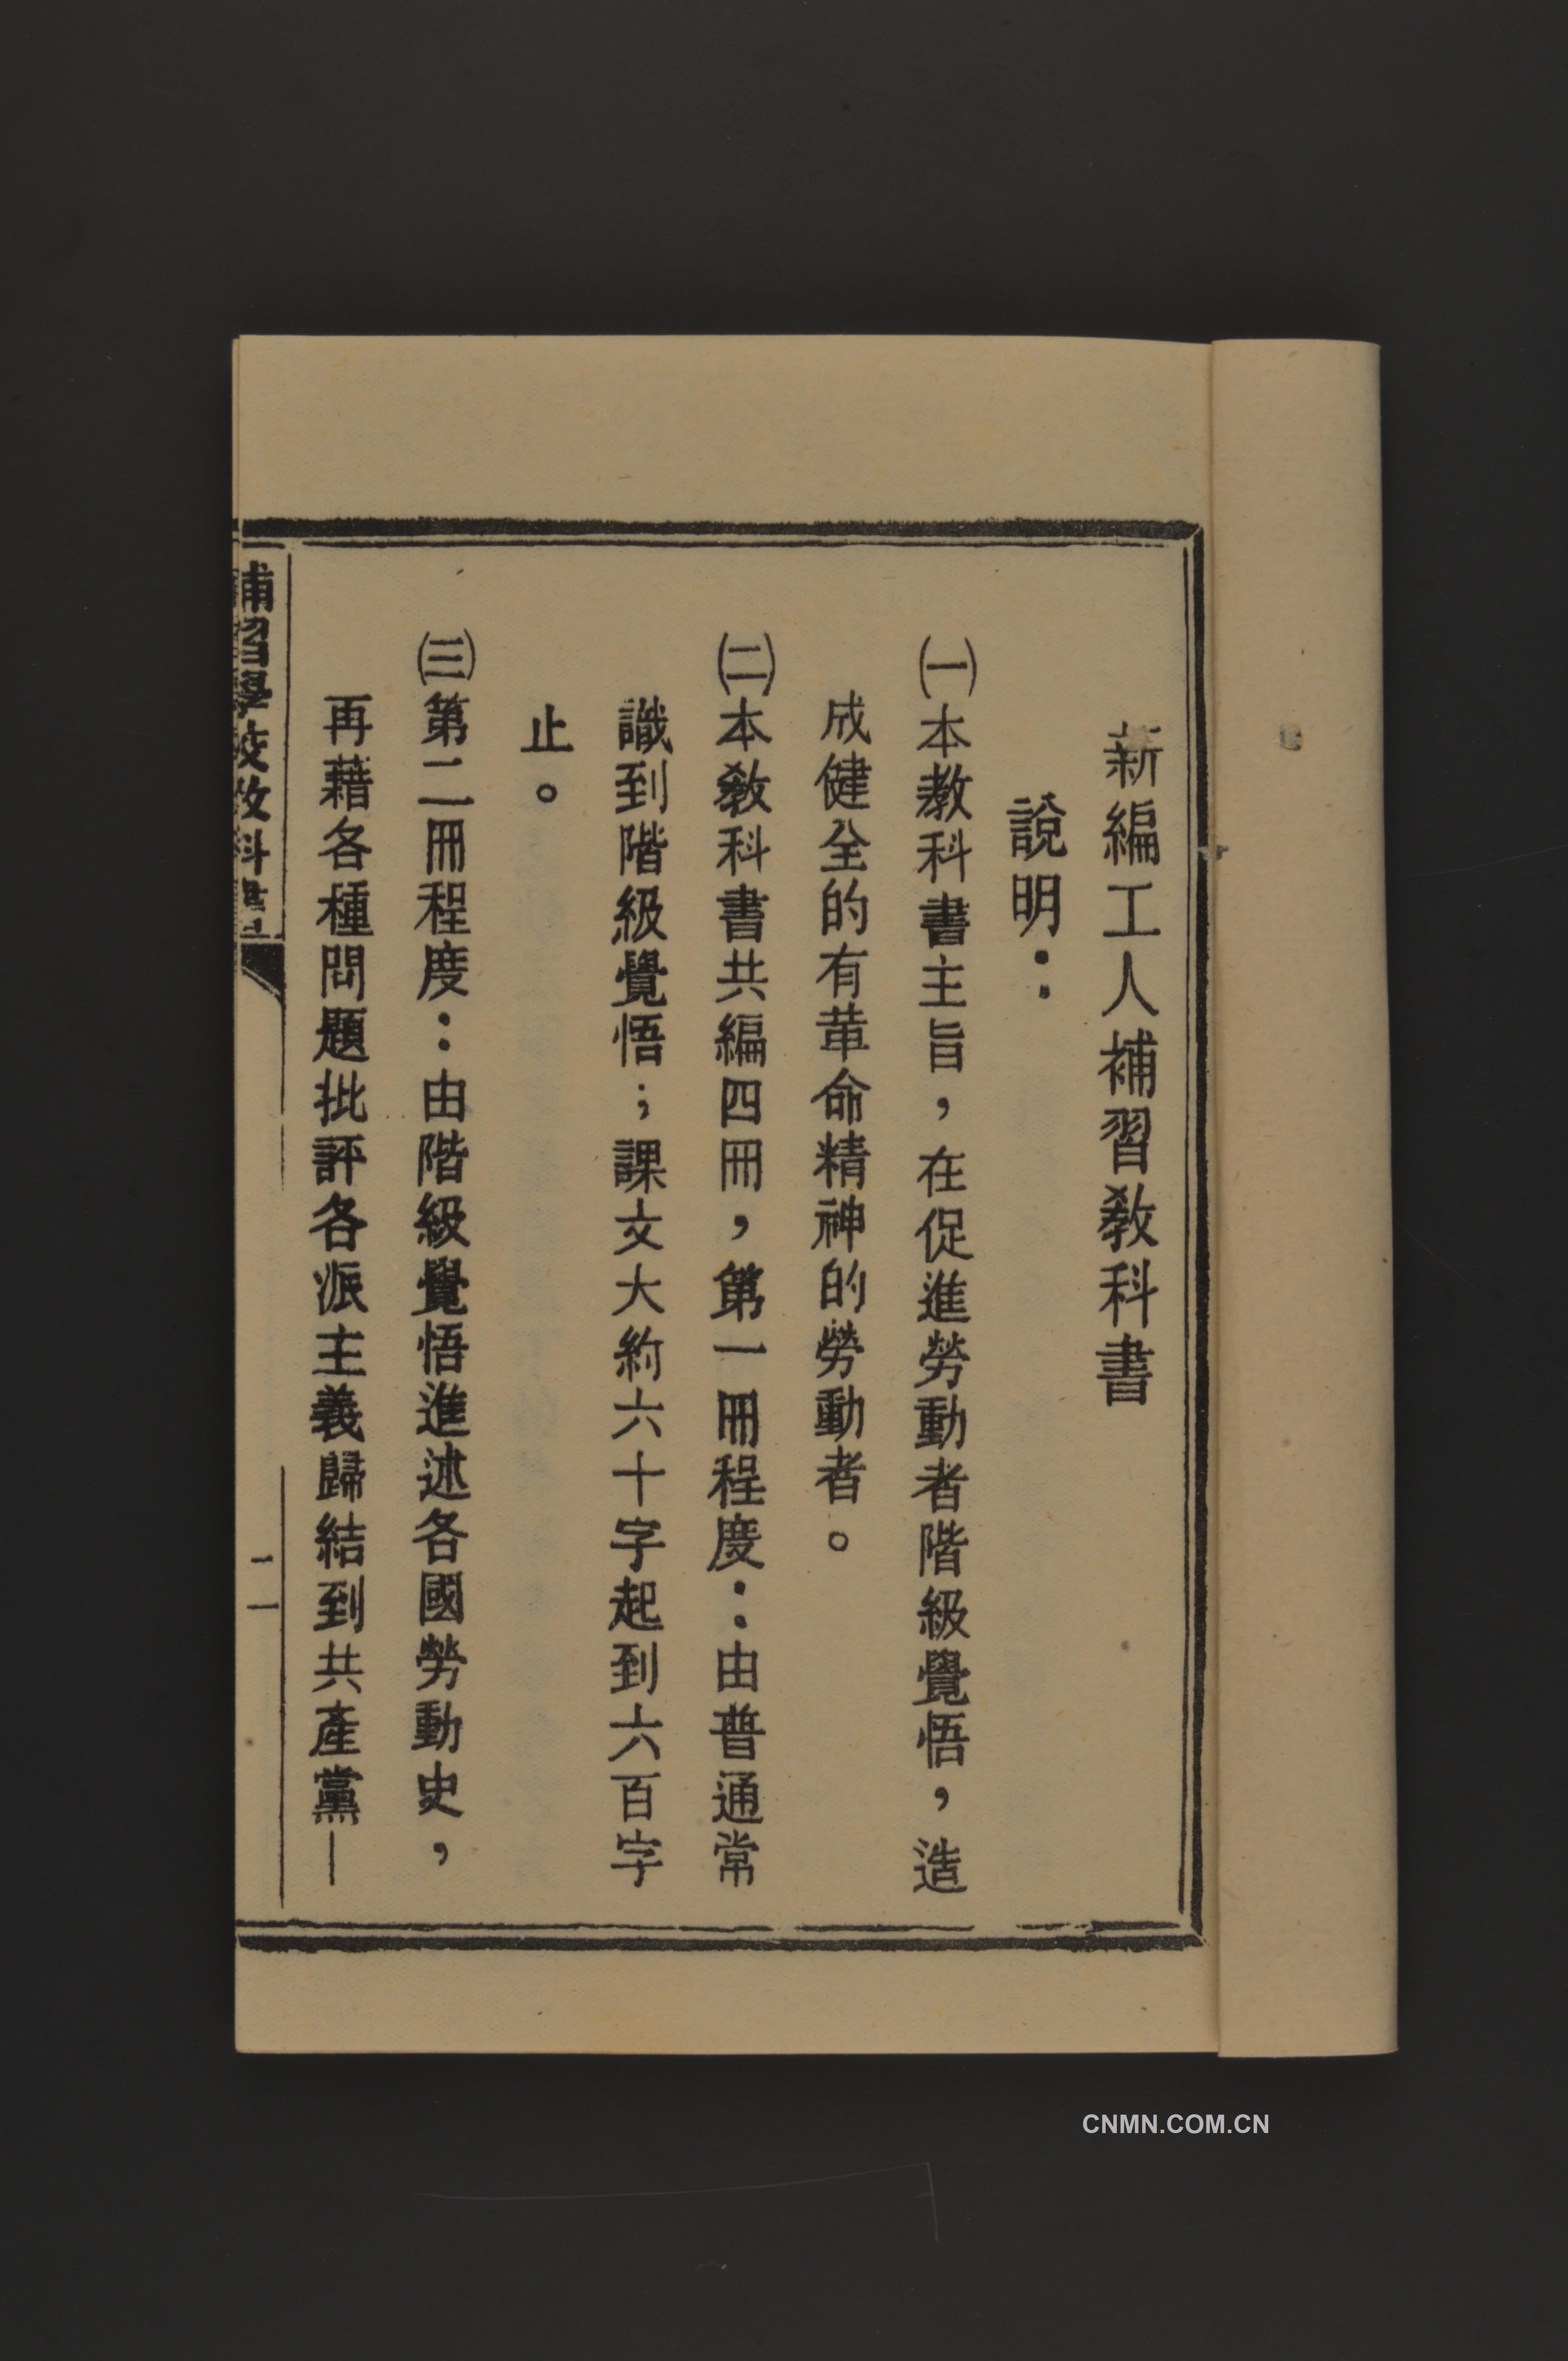 新編工人補習敎科書
說明：
㈠本敎科書主旨，在促進勞動者階級覺悟，造
成健全的有革命精神的勞動者。
㈡本敎科書共編四冊，第一冊程度：由普通常
識到階級覺悟；課文大約六十字起到六百字
止。
㈢第二冊程度：由階級覺悟進述各國勞動史，
再藉各種問題批評各派主義歸結到共產黨—
補習學校敎科書
二
CNMN.COM.CN